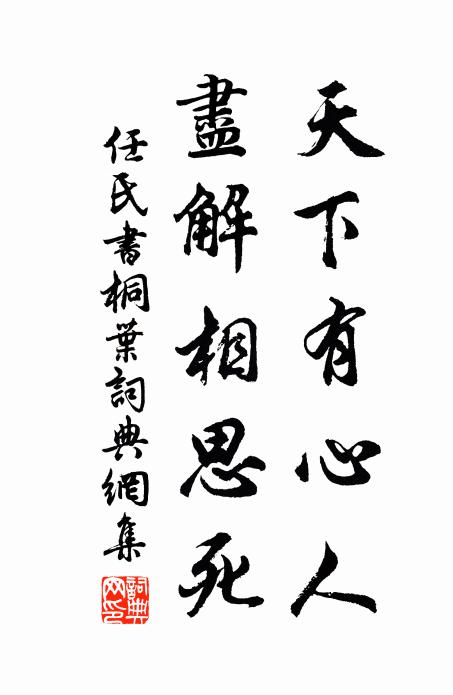 天下有心人
盡解相思死
任氏書桐葉詞典網集
詞典網印